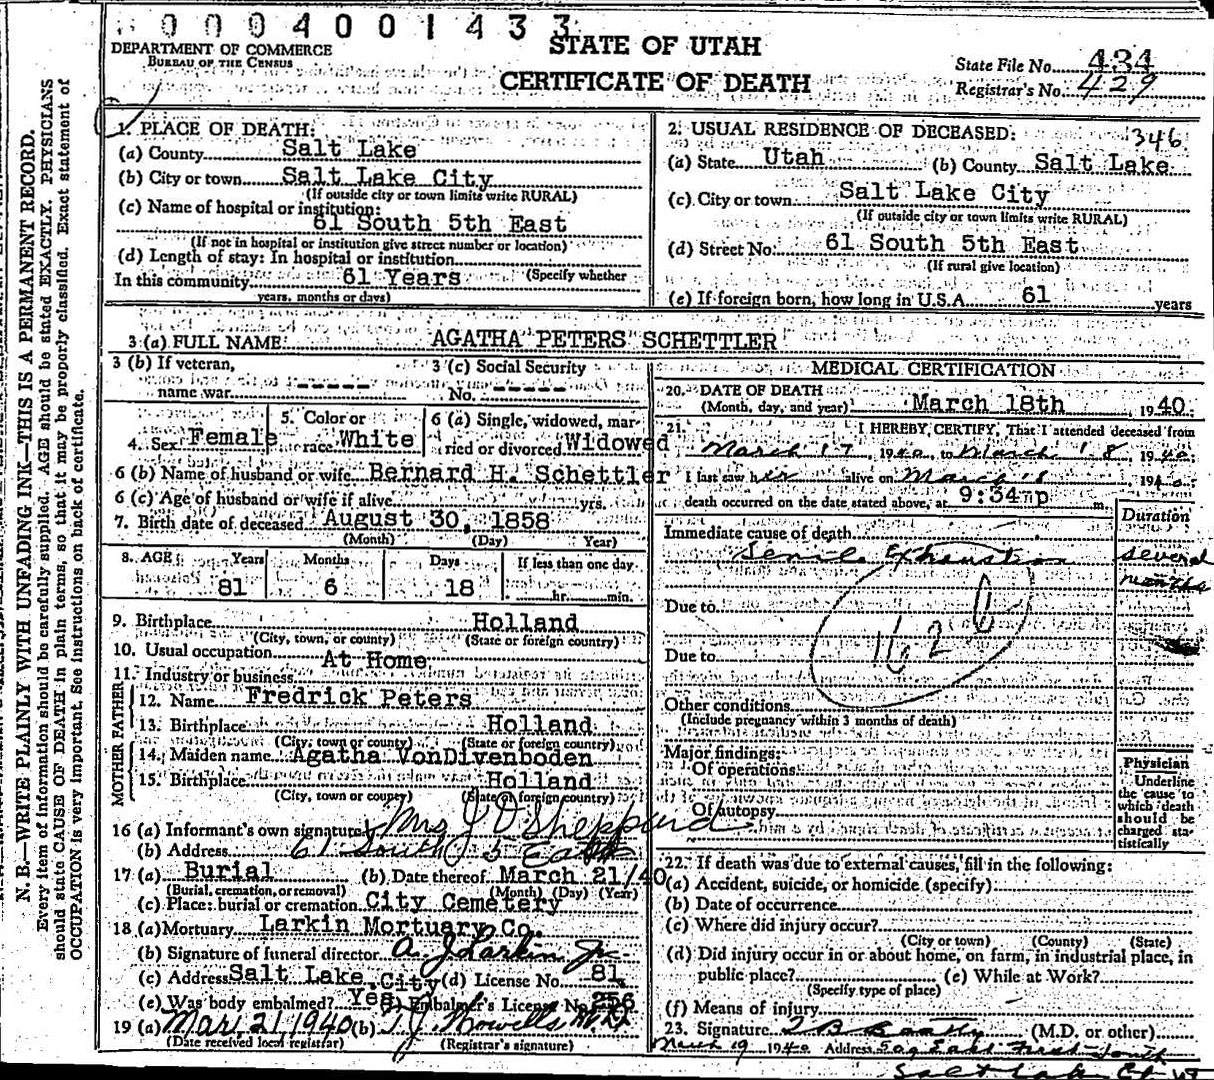 0004001433
DEPARTMENT OF COMMERCE
BUREAU OF THE CENSUS
STATE OF UTAH
CERTIFICATE OF DEATH
State File No. 434
Registrar's No. 429
N. B.—WRITE PLAINLY WITH UNFADING INK—THIS IS A PERMANENT RECORD.
Every item of information should be carefully supplied. AGE should be stated EXACTLY. PHYSICIANS
should state CAUSE OF DEATH in plain terms, so that it may be properly classified. Exact statement of
OCCUPATION is very important. See instructions on back of certificate.
1. PLACE OF DEATH:
(a) County Salt Lake
(b) City or town Salt Lake City
(If outside city or town limits write RURAL)
(c) Name of hospital or institution:
61 South 5th East
(If not in hospital or institution give street number or location)
(d) Length of stay: In hospital or institution
(Specify whether
In this community 61 Years
years, months or days)
2. USUAL RESIDENCE OF DECEASED: 346
(a) State Utah (b) County Salt Lake
(c) City or town Salt Lake City
(If outside city or town limits write RURAL)
(d) Street No. 61 South 5th East
(If rural give location)
(e) If foreign born, how long in U.S.A. 61 years
3 (a) FULL NAME AGATHA PETERS SCHETTLER
3 (b) If veteran, name war -----
3 (c) Social Security No. -----
4. Sex Female
5. Color or race White
6 (a) Single, widowed, married or divorced Widowed
6 (b) Name of husband or wife Bernard H. Schettler
6 (c) Age of husband or wife if alive yrs.
7. Birth date of deceased August 30, 1858
(Month) (Day) Year)
8. AGE Years Months Days If less than one day
81 6 18 hr. min.
9. Birthplace Holland
(City, town, or county) (State or foreign country)
10. Usual occupation At Home
11. Industry or business
FATHER
12. Name Fredrick Peters
13. Birthplace Holland
(City, town or county) (State or foreign country)
MOTHER
14. Maiden name Agatha VonDivenboden
15. Birthplace Holland
(City, town or county) (State or foreign country)
16 (a) Informant's own signature Mrs J D Sheppard
(b) Address 61 South 5 East
17 (a) Burial (b) Date thereof March 21/40
(Burial, cremation, or removal) (Month) (Day) (Year)
(c) Place: burial or cremation City Cemetery
18 (a) Mortuary Larkin Mortuary Co.
(b) Signature of funeral director A. J Larkin Jr
(c) Address Salt Lake City (d) License No. 81
(e) Was body embalmed? Yes (f) Embalmer's License No. 256
19 (a) Mar 21 1940 (b) T. J. Howells M.D.
(Date received local registrar) (Registrar's signature)
MEDICAL CERTIFICATION
20. DATE OF DEATH
(Month, day, and year) March 18th 1940
21. I HEREBY CERTIFY, That I attended deceased from
March 17 1940, to March 18 1940;
I last saw her alive on March 18 1940;
death occurred on the date stated above, at 9:34 p m.
Duration
Immediate cause of death
Senile Exhaustion several
months
Due to
162 b
Due to
Other conditions
(Include pregnancy within 3 months of death)
Major findings:
Of operations
Of autopsy
Physician
Underline
the cause to
which death
should be
charged sta-
tistically
22. If death was due to external causes, fill in the following:
(a) Accident, suicide, or homicide (specify)
(b) Date of occurrence
(c) Where did injury occur?
(City or town) (County) (State)
(d) Did injury occur in or about home, on farm, in industrial place, in
public place? (e) While at Work?
(Specify type of place)
(f) Means of injury
23. Signature (M.D. or other)
March 19 1940 Address 509 East First South
Salt Lake